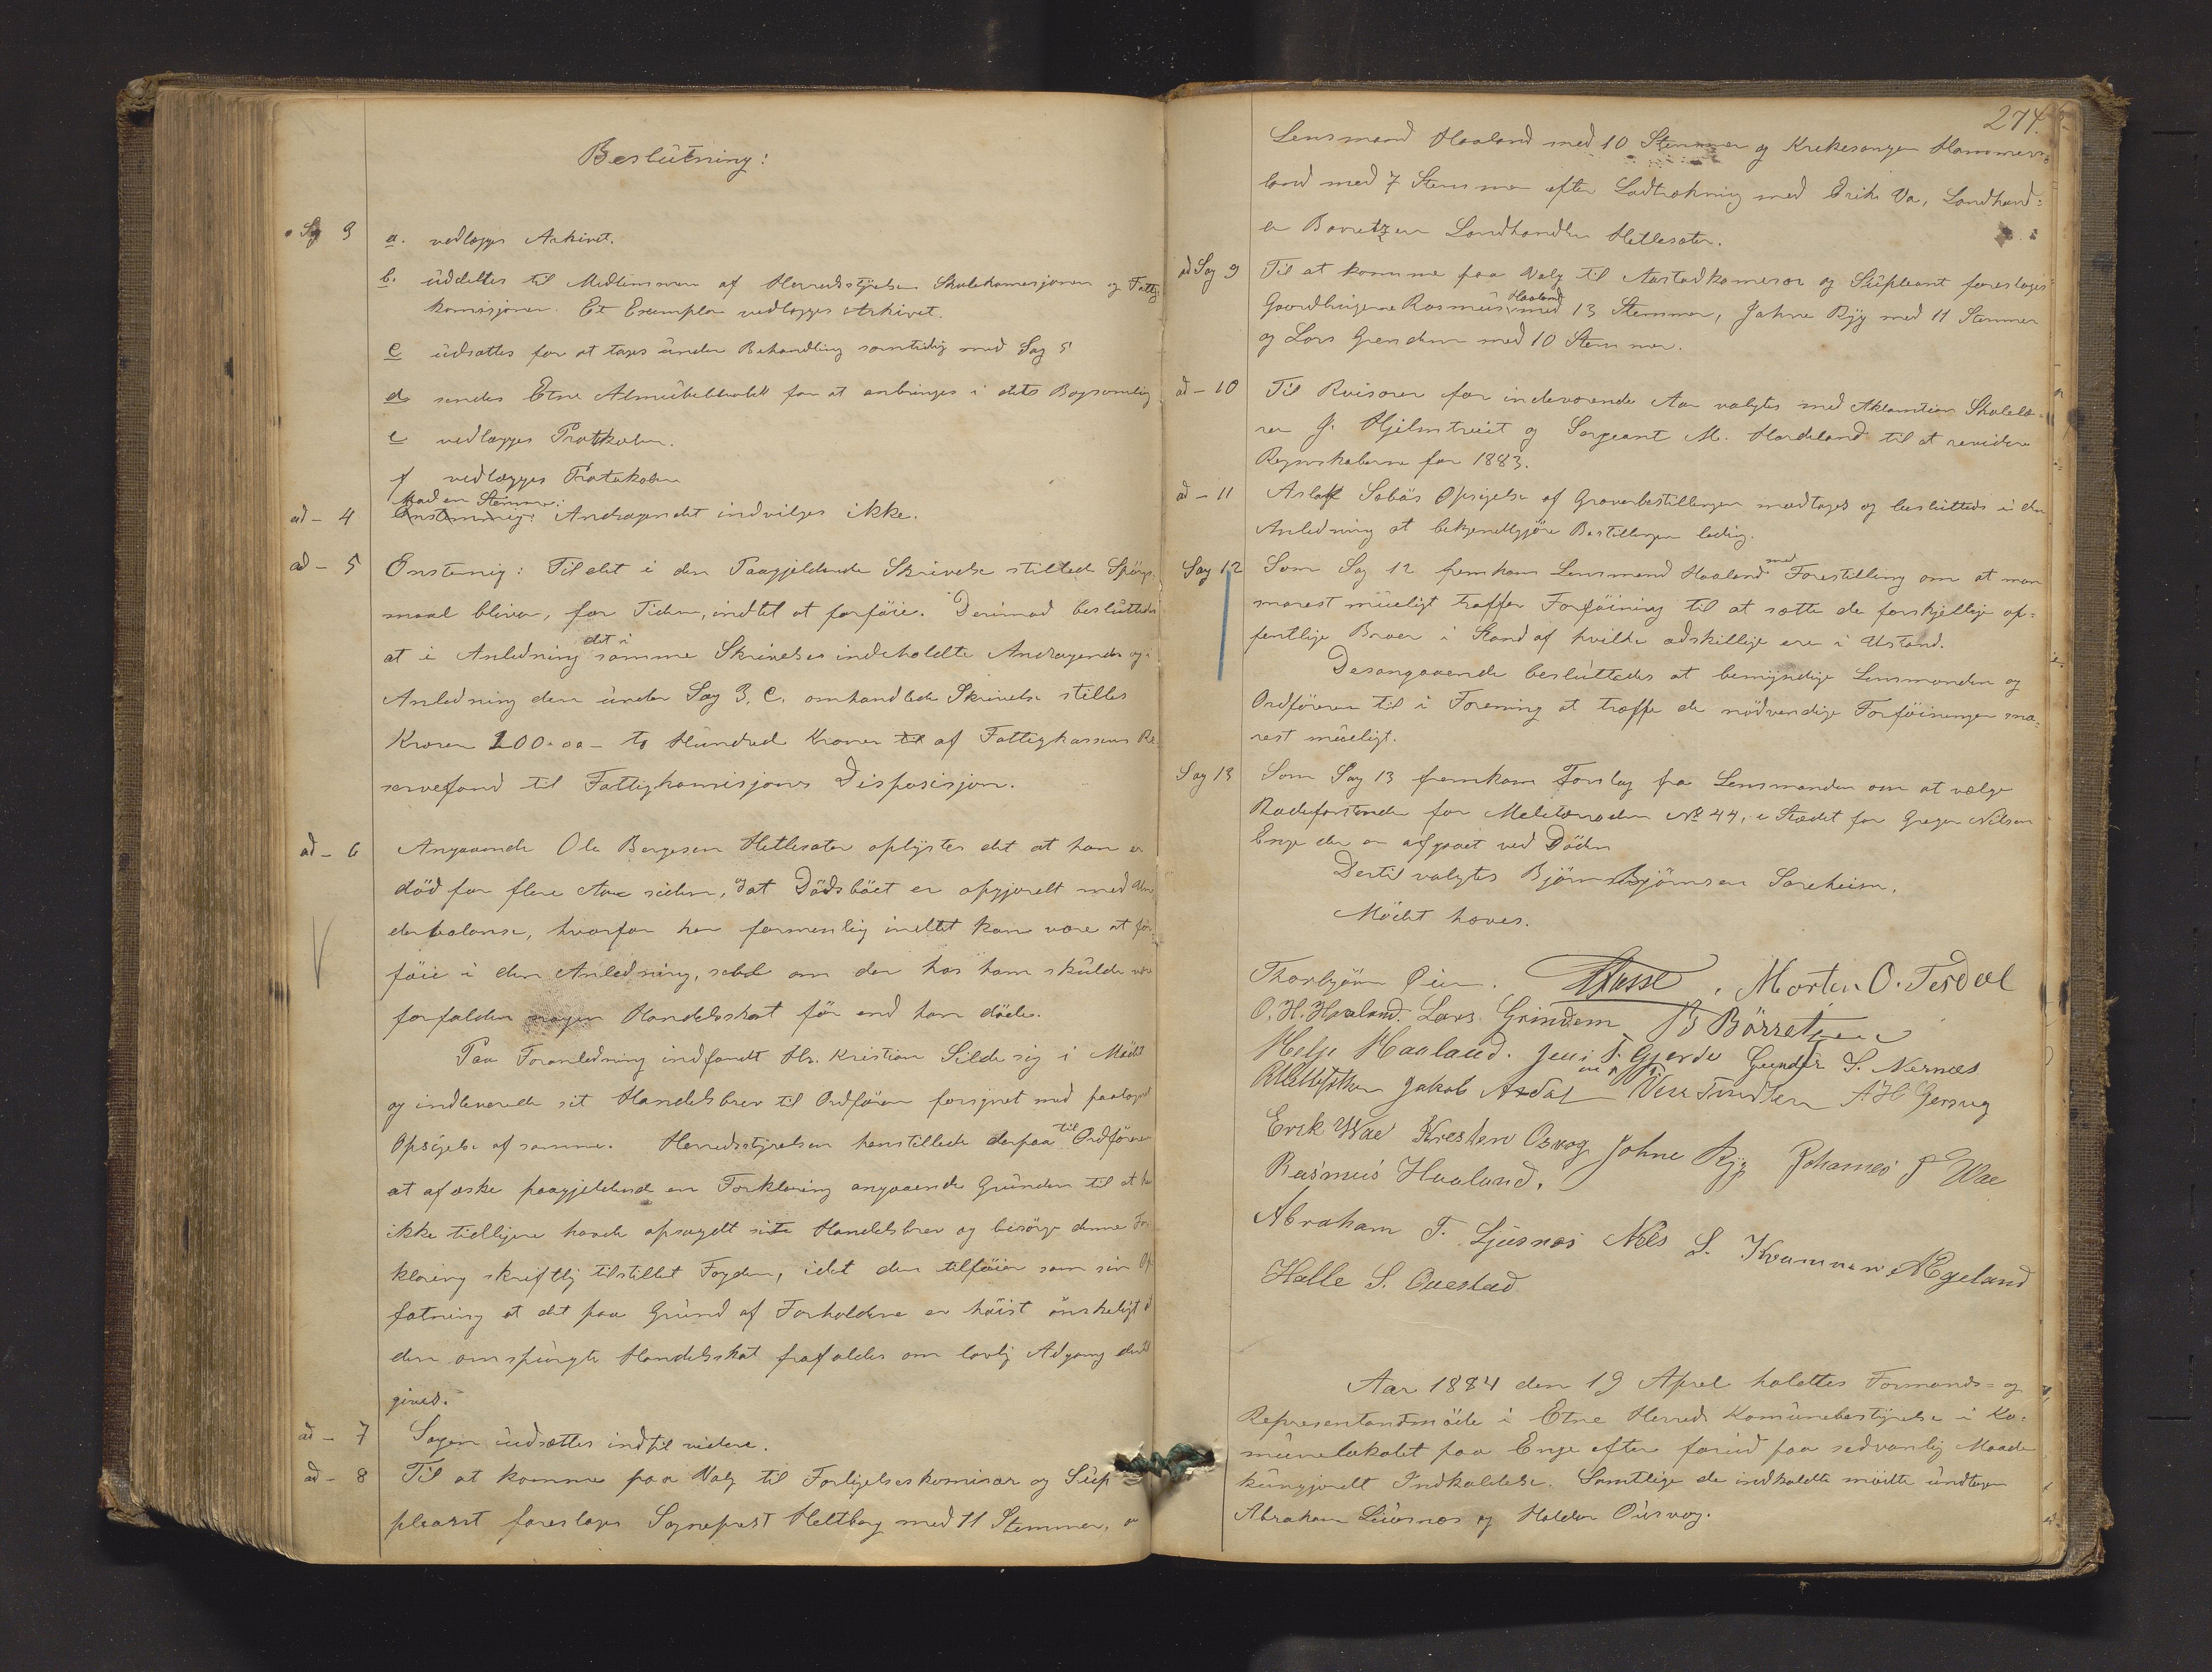 Beslutning:
Sag 3 a. vedlægges Arkivet.
b. uddeltes til Medlemmer af Herredsstyrelsen Skolekomisjonen og Fattig
komisjonen. Et Exemplar vedlægges Arkivet.
c udsættes for at tages under Behandling samtidig med Sag 5
d sendes Etne Almuebibliothek for at anbringes i dets Bogsamling
e vedlægges Protokolen.
f vedlægges Protokolen
Mod en Stemme:
ad - 4 Enstemmig: Andragendet indvilges ikke.
ad - 5 Enstemig: Til det i den Paagjeldende Skrivelse stillede Spörgs-
maal bliver, for Tiden, indtet at forföie. Derimod besluttedes
at i Anledning det i samme Skrivelse indeholdte Andragende og i
Anledning den under Sag 3, c, omhandlede Skrivelse stilles
Kroner 200.00 - to Hundred Kroner til af Fattigkassens Re-
servefond til Fattigkomisjonens Disposisjon.
ad - 6 Angaaende Ole Bergesen Hetlesæter oplystes det at han er
död for flere Aar siden, og at Dödsböet er opgjordt med Un-
derbalanse, hvorfor her formentlig indtet kan være at for-
föie i den Anledning, selv om der hos ham skulde være
forfalden nogen Handelsskat för end han döde.
Paa Foranledning indfandt Hr. Kristian Silde sig i Mödet
og indleverede sit Handelsbrev til Ordföreren forsynet med paategnet
Opsigelse af samme. Herredsstyrelsen henstillede derpaa til Ordföreren
at afæske paagjeldende en Forklaring angaaende Grunden til at han
ikke tidligere havde opsagdt sit Handelsbrev og besörge denne For-
klaring skriftlig tilstillet Fogden, idet den tilföier som sin Op-
fatning at det paa Grund af Forholdene er höist önskeligt at
den omspurgte Handelsskat frafaldes om lovlig Adgang dertil
gives.
ad - 7 Sagen udsættes indtil videre.
ad - 8 Til at komme paa Valg til Forligelseskomisær og Sup-
pleant foreslages Sogneprest Heltberg med 11 Stemmer,
274.
Lensmand Haaland med 10 Stemmer og Kirkesanger Hammers-
land med 7 Stemmer efter Lodtrækning med Erik Va, Landhand-
ler Börretzen Landhandler Hetlesæter.
ad Sag 9 Til at komme paa Valg til Aastadkomesær og Supleant foreslages
Gaardbrugerne Rasmus Haaland med 13 Stemmer, Johne Ryg med 11 Stemmer
og Lars Grendem med 10 Stemmer.
ad - 10 Til Revisorer for indeværende Aar valgtes med Aklamtion Skolelæ-
rer J. Hjelmtveit og Sergeant M. Hardeland til at revidere
Regnskaberne for 1883.
ad - 11 Aslak Sæbös Opsigelse af Graverbestillingen modtoges og besluttedes i den
Anledning at bekjendtgjöre Bestillingen ledig.
Sag 12 Som Sag 12 fremkom Lensmand Haaland med Forestilling om at man
snarest mueligt træffer Forföining til at sætte de forskjellige of-
fentlige Broer i Stand af hvilke adskillige ere i Ustand.
Desangaaende besluttedes at bemyndige Lensmanden og
Ordföreren til i Forening at træffe de nödvendige Forföininger sna-
rest mueligt.
Sag 13 Som Sag 13 fremkom Forslag fra Lensmanden om at vælge
Rodeforstander for Meletæroden No 44, i Stedet for Gregar Nilsen
Enge der er afgaaet ved Döden
Dertil valgtes Björn Björnsen Særeheim.
Mödet hæves.
Thorbjörn Øien. Morten O. Tesdal
O. H. Haaland. Lars Grindem Börretzen
Helje Haaland. Jens T. Gjerde Gunder S. Nernæs
Jakob Ardal
Erik Wae Kresten Osvog Johne Ryg Johannes J Wae
Rasmus Haaland.
Abraham T. Ljusnes Nels S. Kvammen Egeland
Halle S. Ouestad
Aar 1884 den 19 Aprel holdtes Formands- og
Representantmöde i Etne Herreds Komunebestyrelse i Ko-
munelokalet paa Enge efter forud paa sedvanlig Maade
kungjordt Indkaldelse. Samtlige de indkaldte mödte undtagen
Abraham Liusnes og Halder Ousvog.